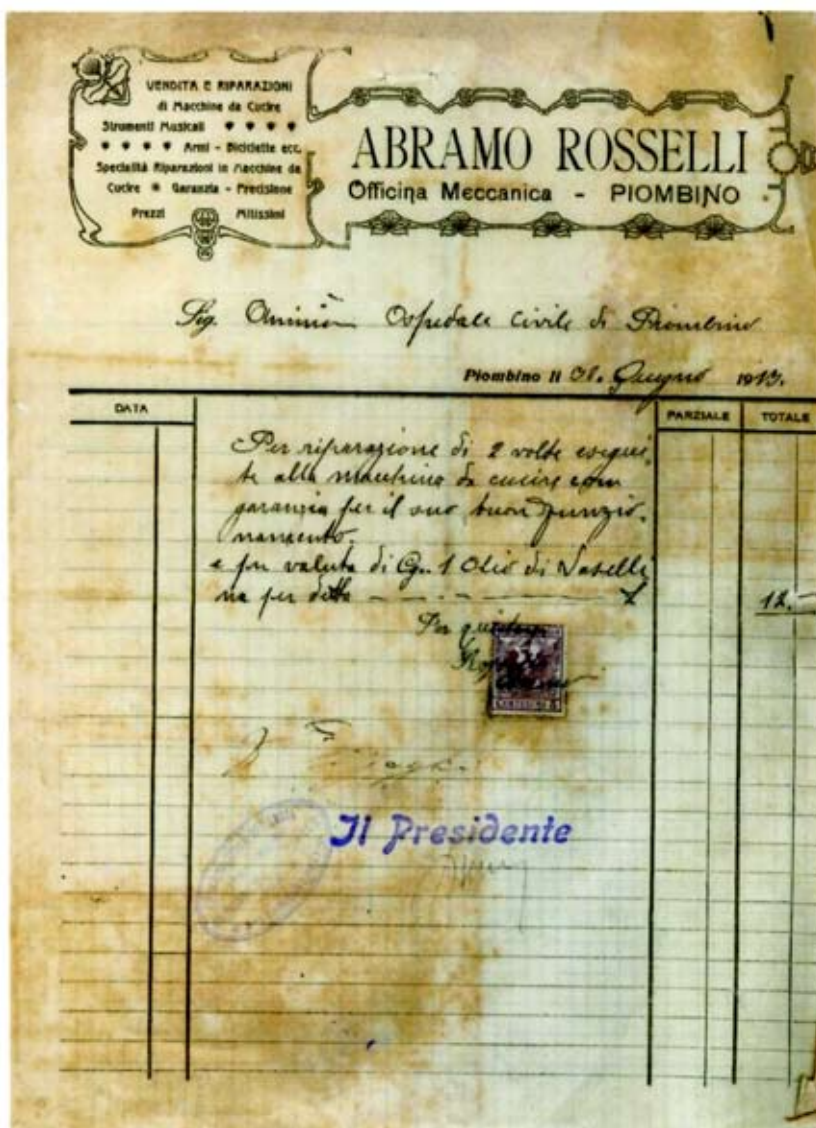 VENDITA E RIPARAZIONI
di Macchine da Cucire
Strumenti Musicali
Armi - Biciclette ecc.
Specialità Riparazioni in Macchine da
Cucire * Garanzia - Precisione
Prezzi Mitissimi
ABRAMO ROSSELLI
Officina Meccanica - PIOMBINO
Sig. Ospedale Civile di Piombino
Piombino li Giugno 1913.
DATA PARZIALE TOTALE
Per riparazione di 2 volte esegui,
te alla macchina da cucire con
garanzia per il suo buon funzio,
namento.
e per valuta di 1 Olio di Vaselli
na per detta 12.
Per
CENTESIMI 5
Il Presidente